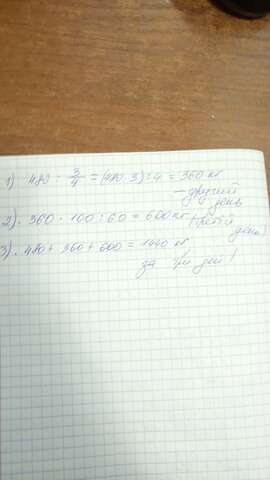 1) 480 · 3/4 = (480·3):4 = 360 кг
– другий
день
2). 360 · 100 : 60 = 600 кг (третій
день)
3). 480 + 360 + 600 = 1440 кг
за три дні!